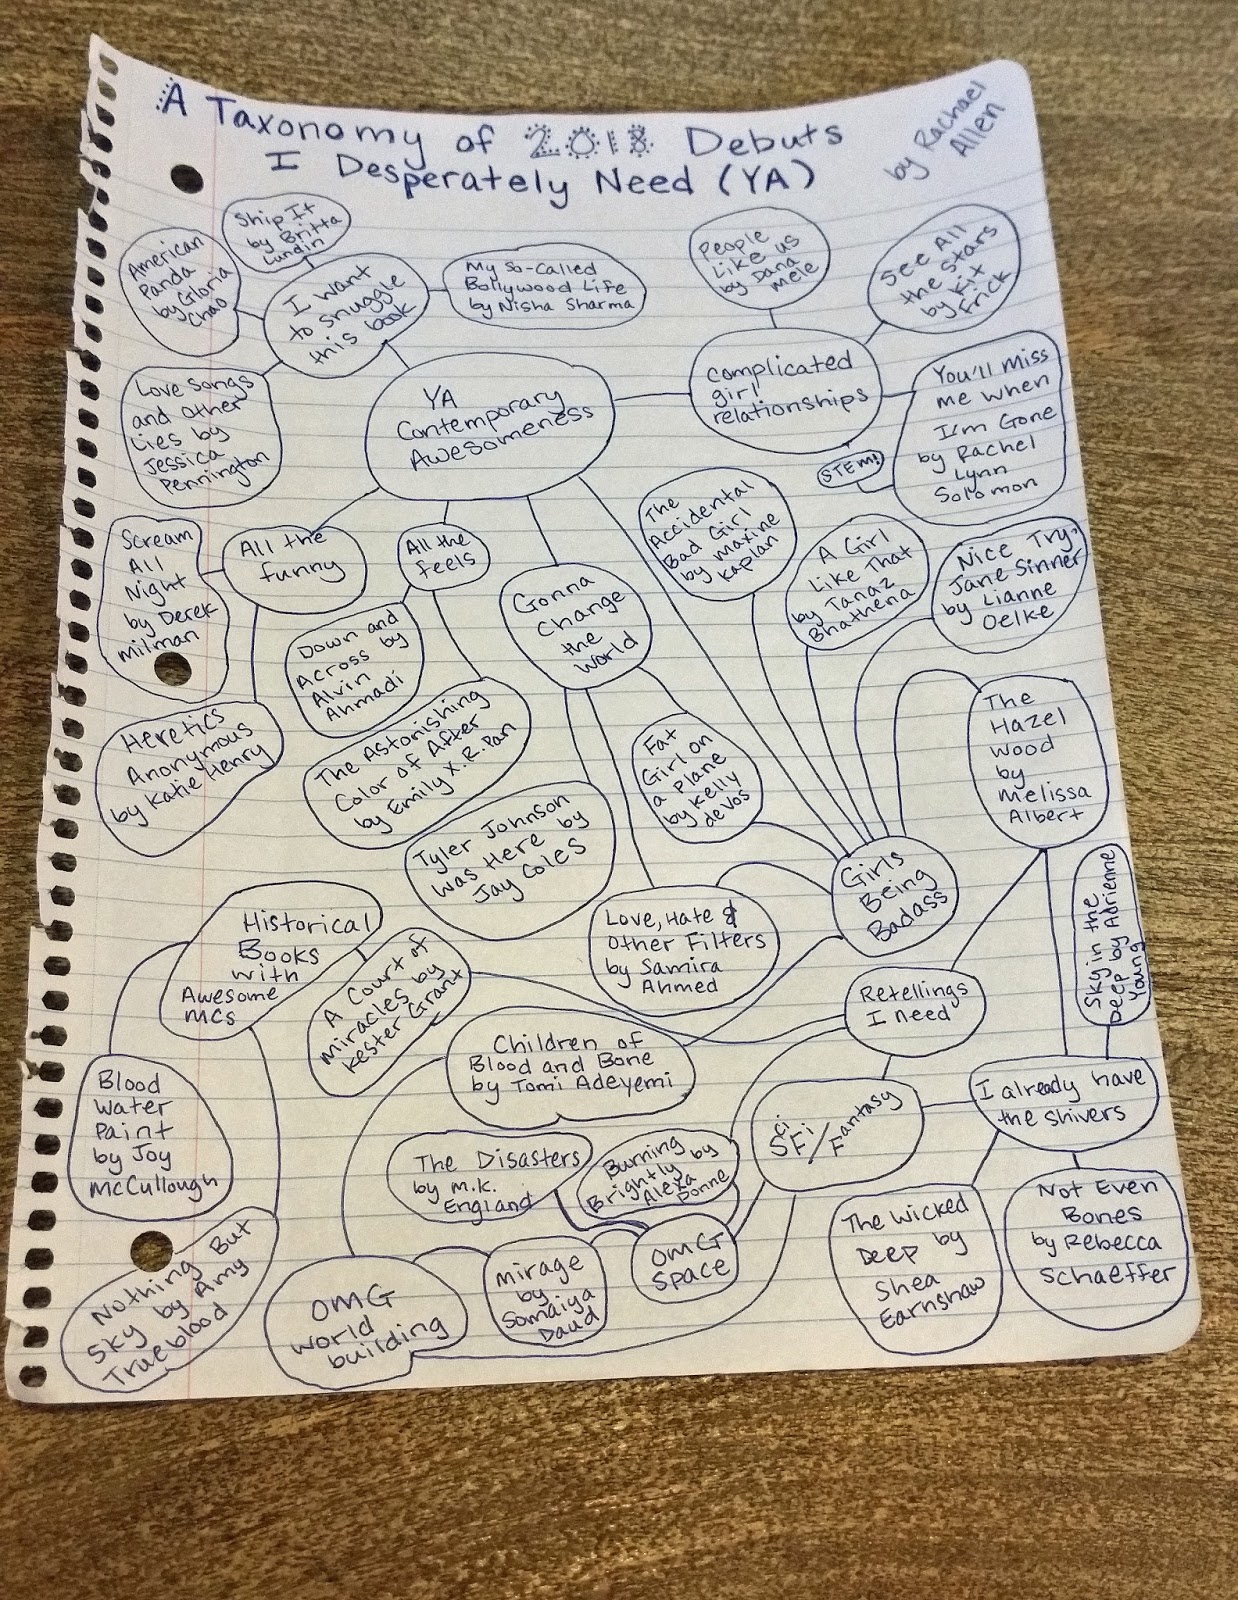 A Taxonomy of 2018 Debuts
I Desperately Need (YA)
by Rachael
Allen
Ship It
by Britta
Lundin
American
Panda
by Gloria
Chao
I want
to snuggle
this book
My So-Called
Bollywood Life
by Nisha Sharma
People
Like us
by Dana
Mele
See All
the Stars
by Kit
Frick
Love Songs
and Other
Lies by
Jessica
Pennington
YA
Contemporary
Awesomeness
complicated
girl
relationships
You'll miss
me when
I'm Gone
by Rachel
Lynn
Solomon
STEM!
Scream
All
Night
by Derek
Milman
All the
funny
All the
feels
Gonna
Change
the
world
The
Accidental
Bad Girl
by Maxine
Kaplan
A Girl
Like That
by Tanaz
Bhathena
Nice Try,
Jane Sinner
by Lianne
Oelke
Down and
Across by
Alvin
Ahmadi
Heretics
Anonymous
by Katie Henry
The Astonishing
Color of After
by Emily X.R. Pan
Fat
Girl on
a Plane
by Kelly
deVos
The
Hazel
Wood
by
Melissa
Albert
Tyler Johnson
was Here by
Jay Coles
Girls
Being
Badass
Historical
Books
with
Awesome
MCs
A Court of
Miracles by
Kester Grant
Love, Hate &
Other Filters
by Samira
Ahmed
Sky in the
Deep by Adrienne
Young
Retellings
I need
Children of
Blood and Bone
by Tomi Adeyemi
Blood
Water
Paint
by Joy
McCullough
I already have
the shivers
SciFi/Fantasy
The Disasters
by M.K.
England
Burning
Brightly by
Alexa
Donne
Nothing But
Sky by Amy
Trueblood
OMG
world
building
Mirage
by
Somaiya
Daud
OMG
Space
The Wicked
Deep by
Shea
Earnshaw
Not Even
Bones
by Rebecca
Schaeffer